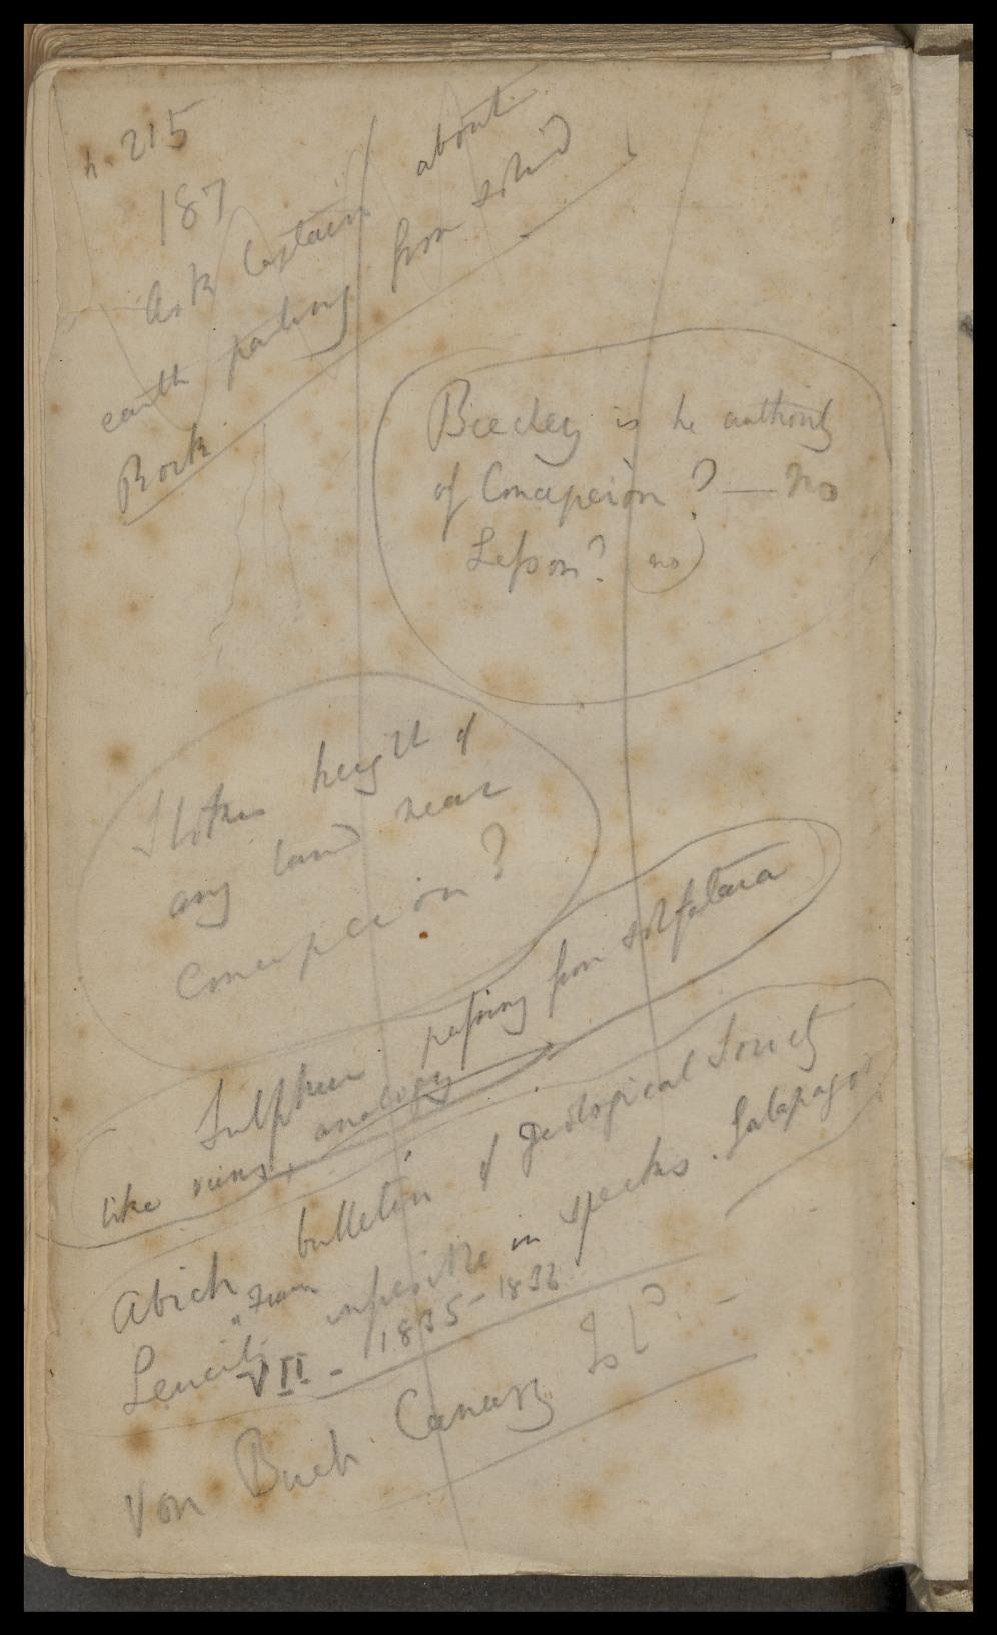 p. 215
187
Ask Captain about
earth parting from solid
Rock
Beechey is he authority
of Concepcion? — No
Lesson? no
Stokes height of
any land near
Concepcion?
Sulphur passing from solfatara
like veins, analogy
Abich bulletin of Geological Society
" Franc
Leucite impossible in specks. Galapagos
VII - 1835-1836
Von Buch Canary Isd